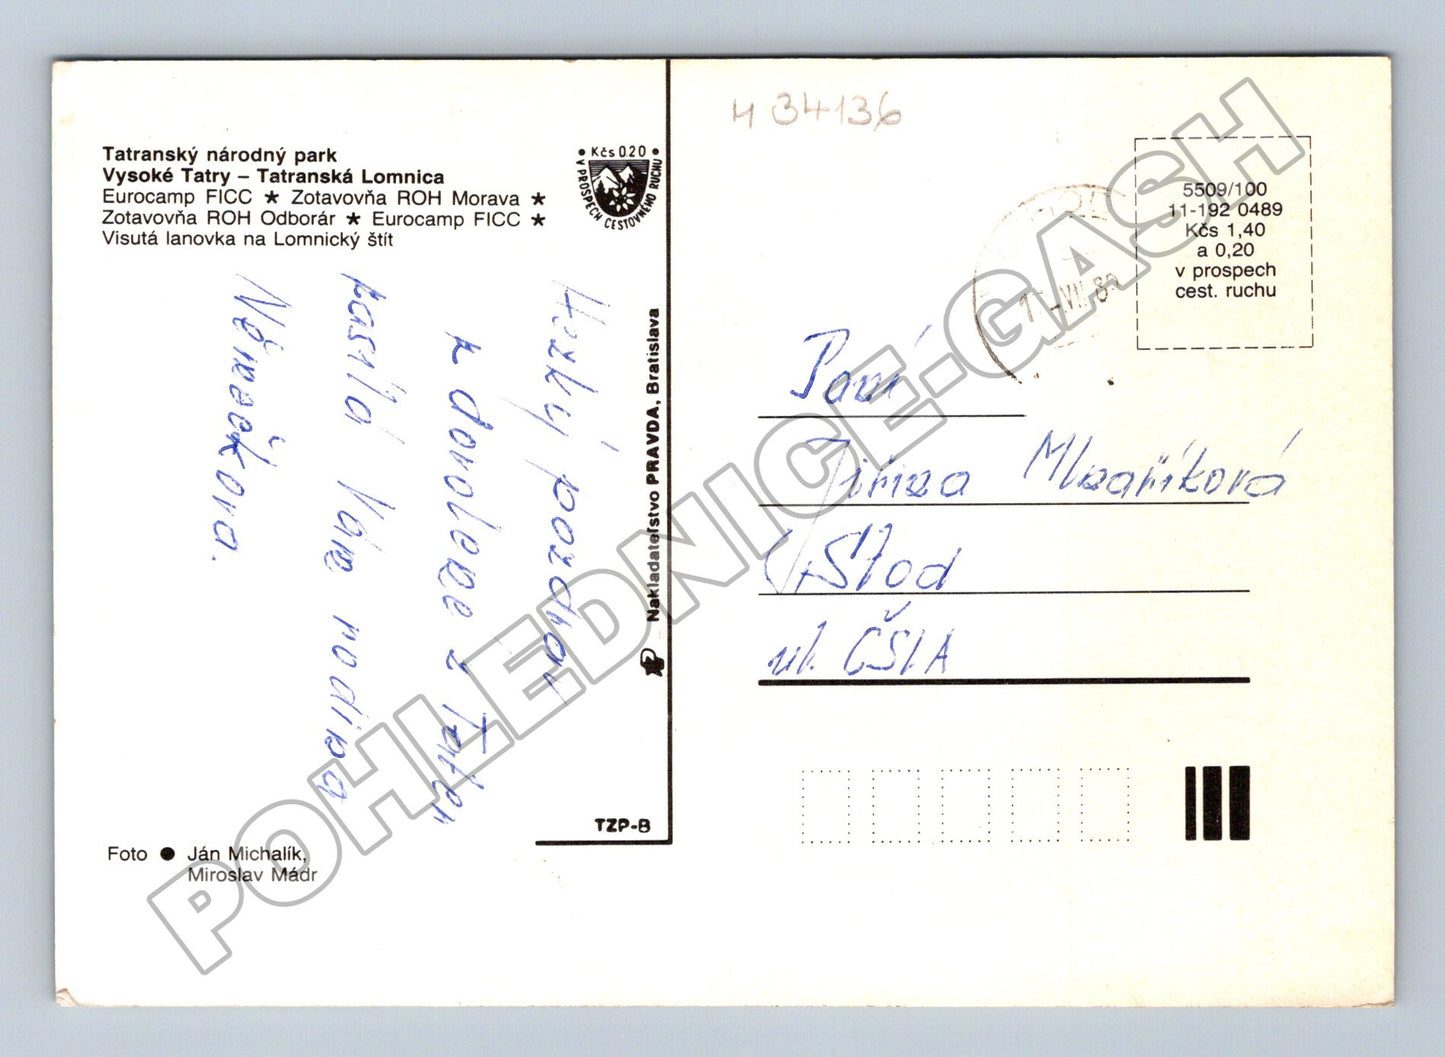 Tatranský národný park
Vysoké Tatry – Tatranská Lomnica
Eurocamp FICC ★ Zotavovňa ROH Morava ★
Zotavovňa ROH Odborár ★ Eurocamp FICC ★
Visutá lanovka na Lomnický štít
• Kčs 0,20 •
V PROSPECH CESTOVNÉHO RUCHU
Hezký pozdrav
z dovolené z Tater
Vám rodina
Němečkova.
Nakladateľstvo PRAVDA, Bratislava
TZP-B
Foto ● Ján Michalík,
Miroslav Mádr
434136
5509/100
11-192 0489
Kčs 1,40
a 0,20
v prospech
cest. ruchu
VII. 8
Paní
Jiřina
Stod
ul. ČSLA
POHLEDNICE-GASH